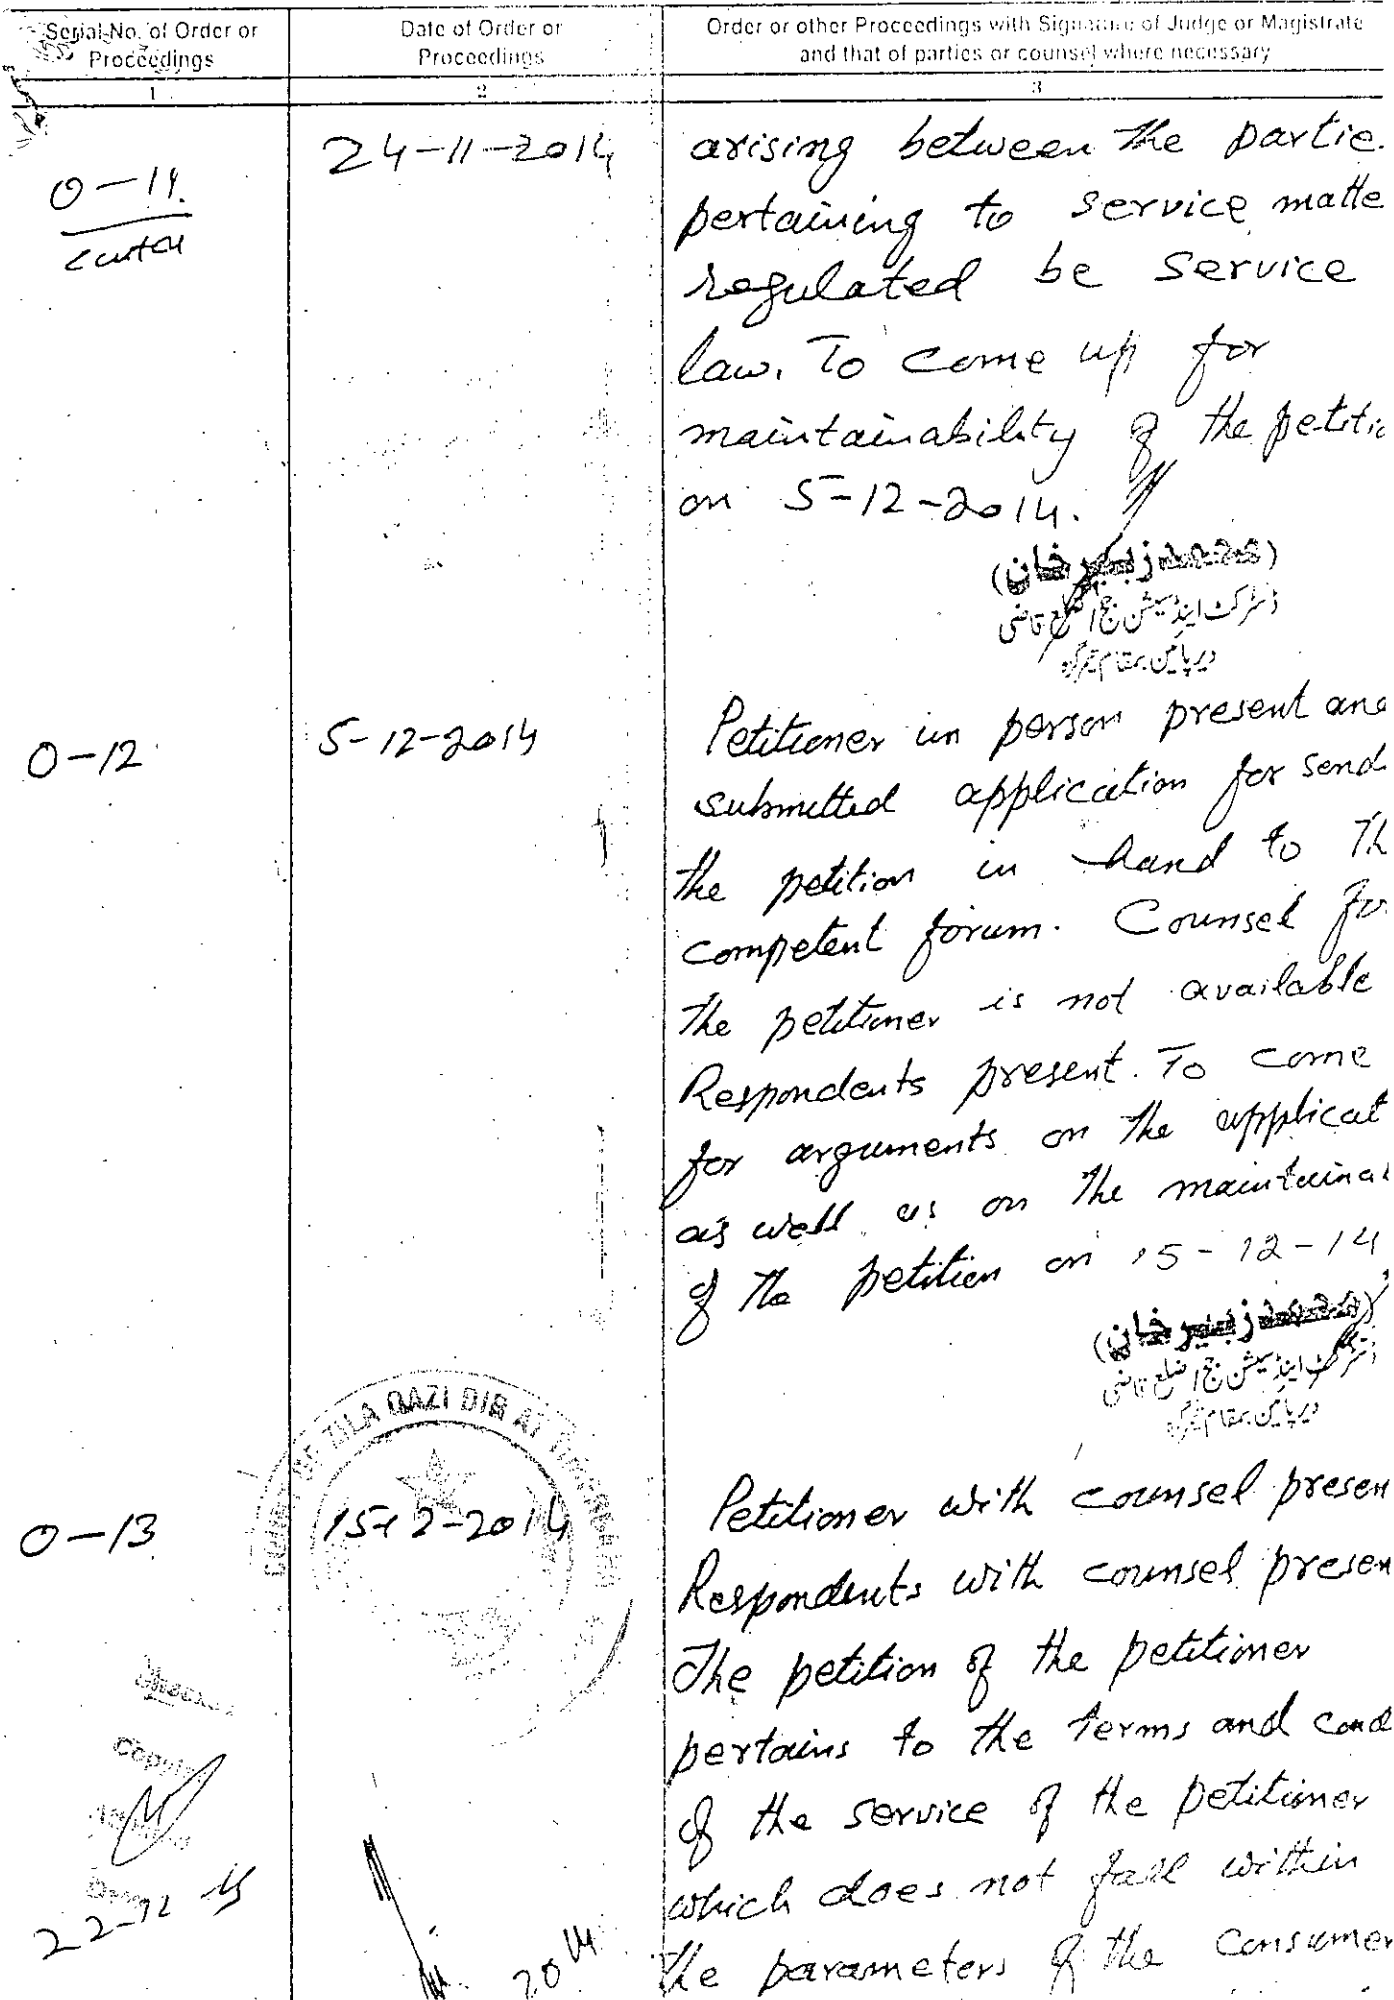 Serial No. of Order or Proceedings
Date of Order or Proceedings
Order or other Proceedings with Signature of Judge or Magistrate and that of parties or counsel where necessary
1
2
3
0-11
24-11-2014
arising between the partie
pertaining to service matte
regulated be service
law. To come up for
maintainability of the petitio
on 5-12-2014.
(محمد زبیر خان)
ڈسٹرکٹ اینڈ سیشن جج / ضلع قاضی
دیر پائین بمقام تیمرگرہ
0-12
5-12-2014
Petitioner in person present and
submitted application for send
the petition in hand to Th
competent forum. Counsel for
the petitioner is not available
Respondents present. To come
for arguments on the applicat
as well as on the maintainab
of the petition on 15-12-14
(محمد زبیر خان)
ڈسٹرکٹ اینڈ سیشن جج / ضلع قاضی
دیر پائین بمقام تیمرگرہ
ZILA QAZI DIR AT
0-13
15-12-2014
Petitioner with counsel presen
Respondents with counsel presen
The petition of the petitioner
pertains to the terms and cond
of the service of the petitioner
which does not fall within
the parameters of the Consumer
22-12